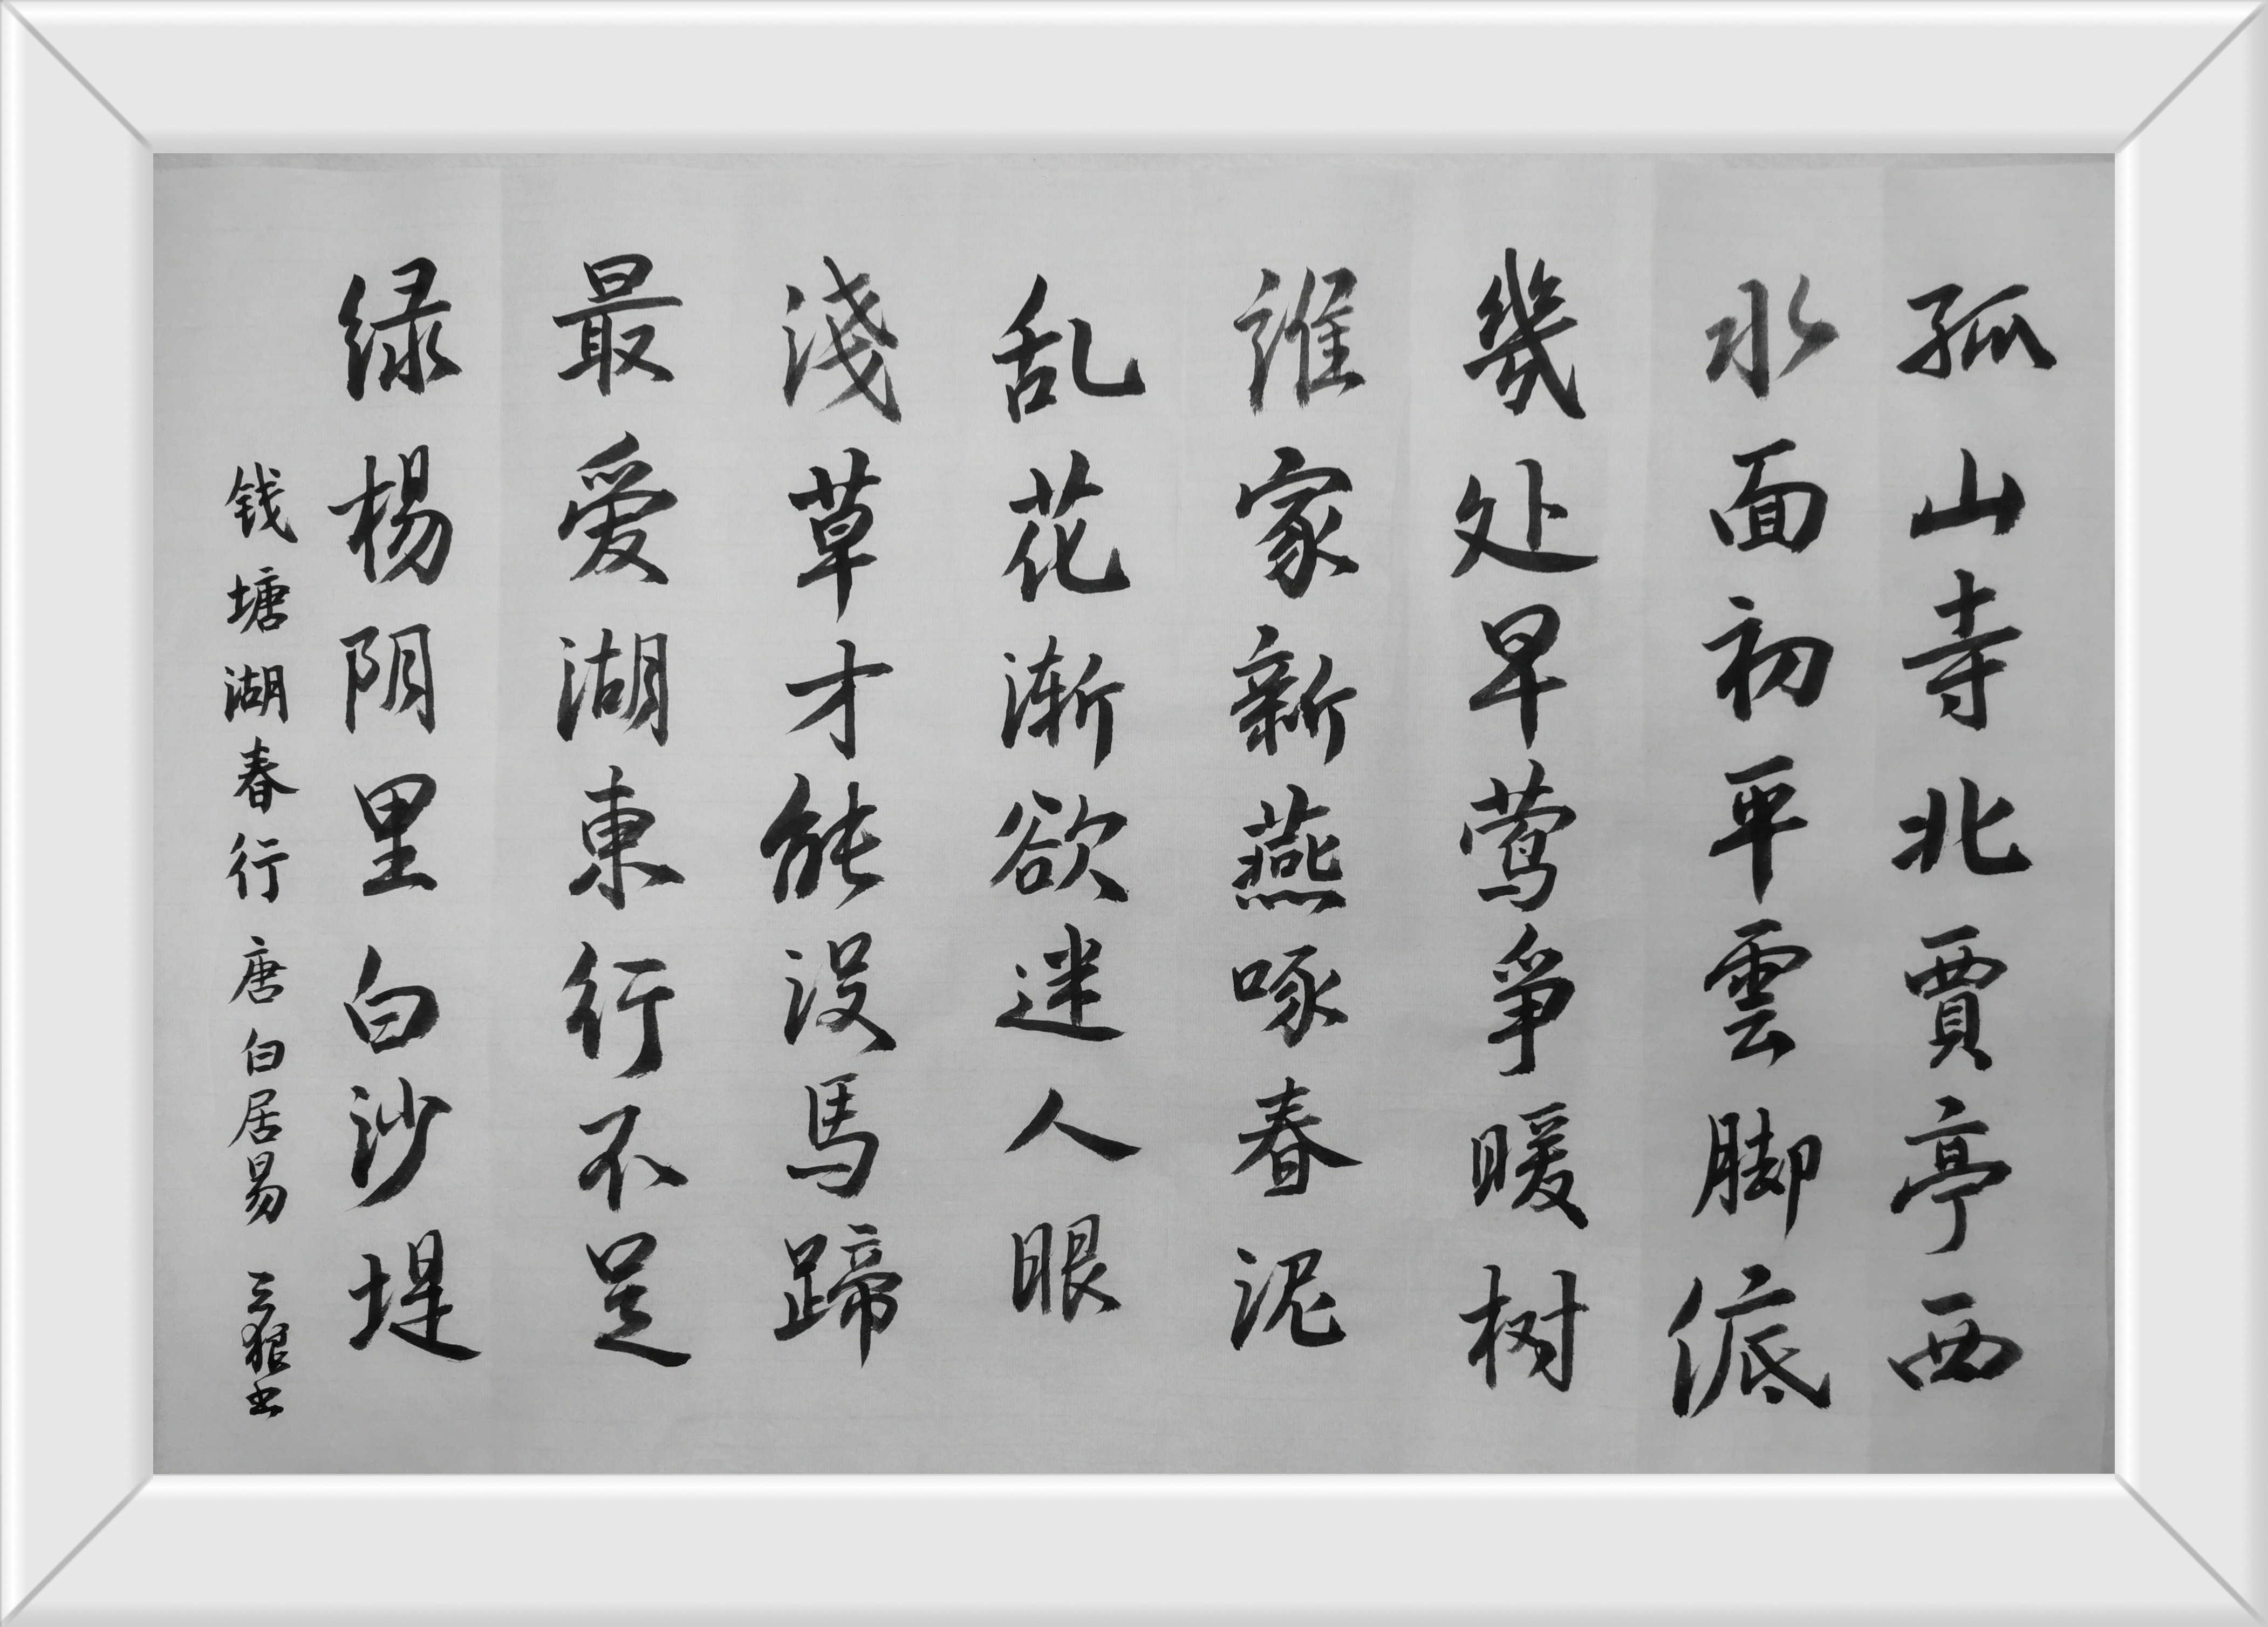 孤山寺北賈亭西
水面初平雲脚低
幾处早莺爭暖树
誰家新燕啄春泥
乱花渐欲迷人眼
淺草才能没馬蹄
最爱湖東行不足
绿楊阴里白沙堤
钱塘湖春行 唐 白居易 书